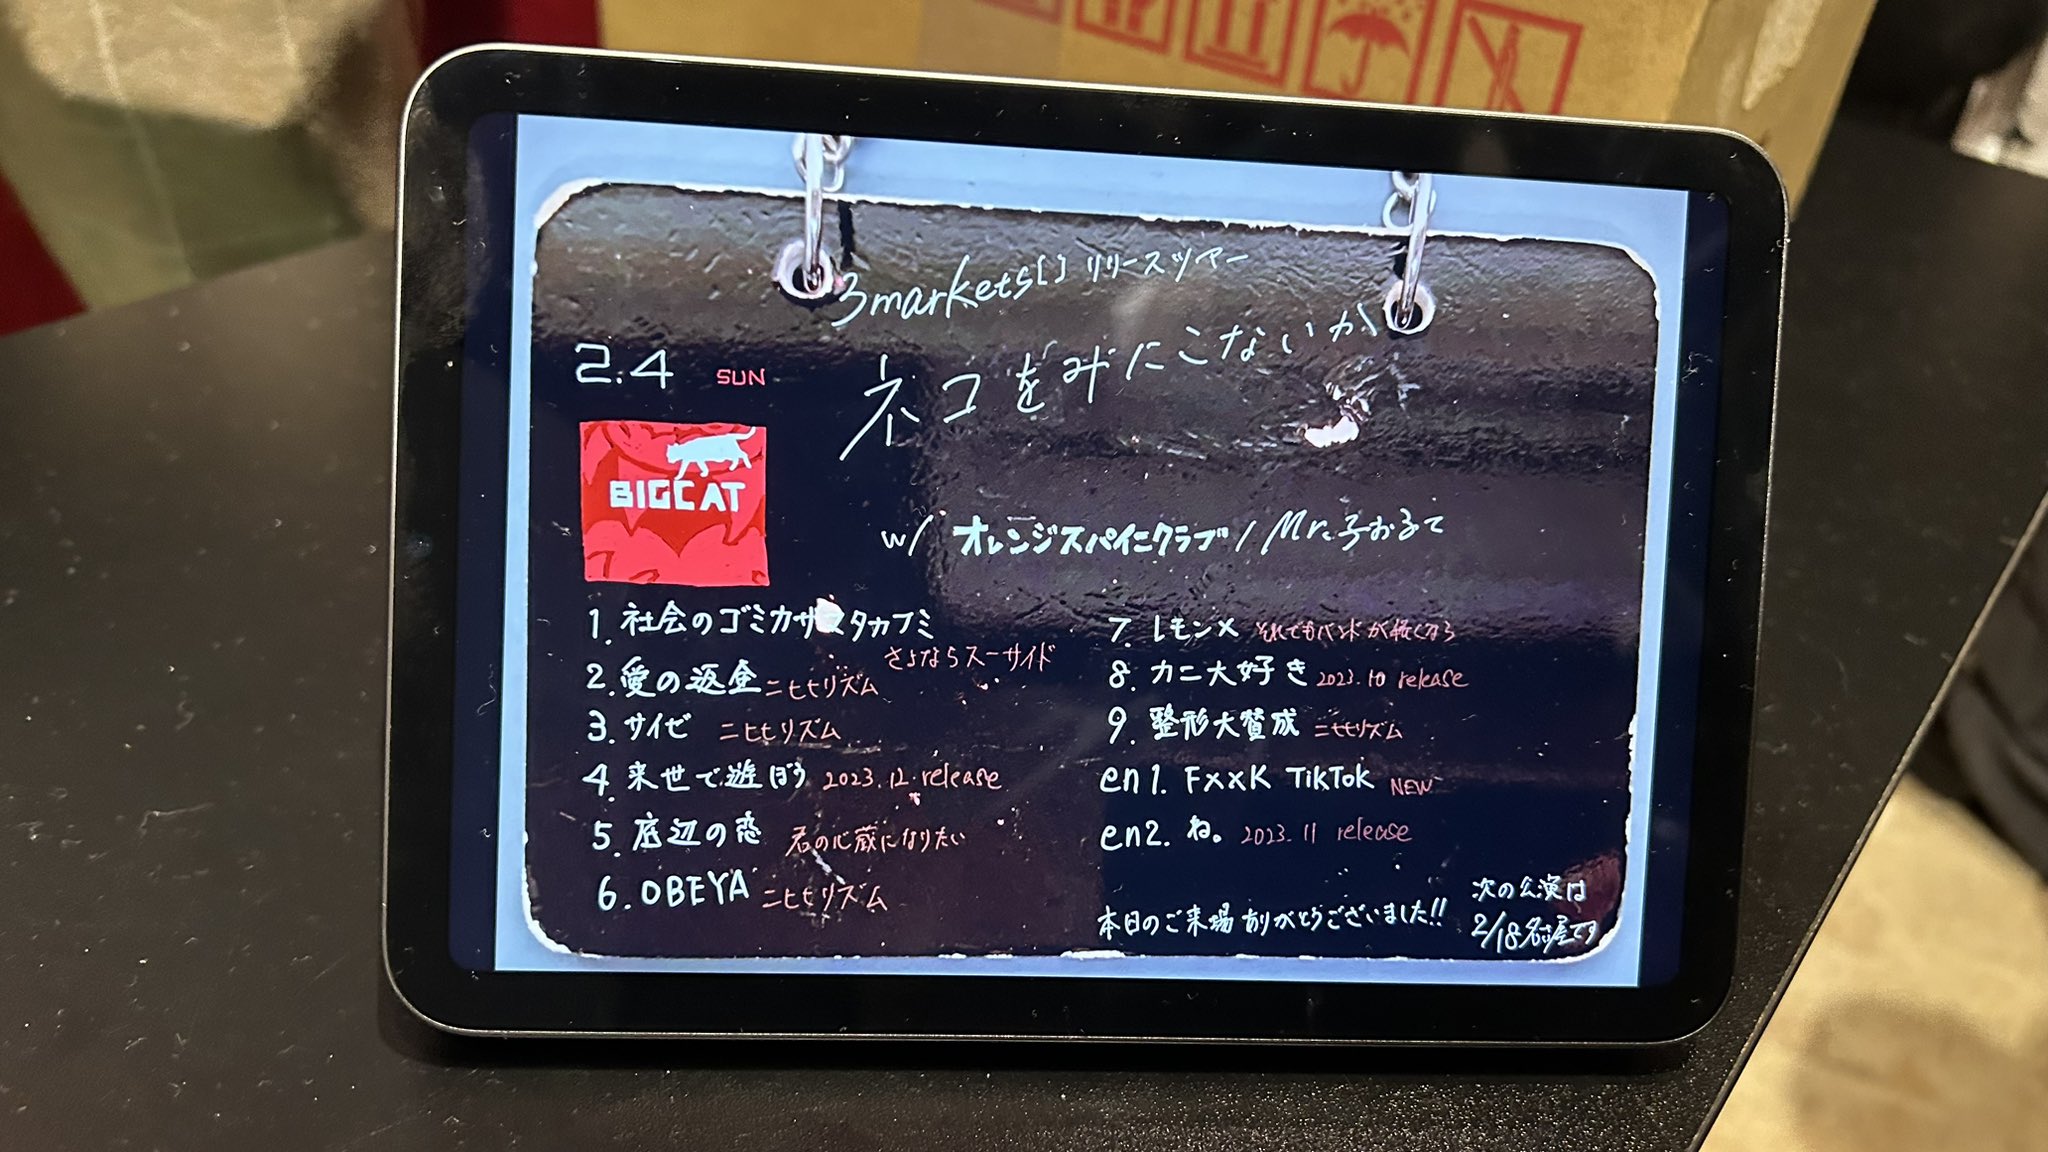 3markets[ ] リリースツアー
ネコをみにこないか
2.4 SUN
BIGCAT
w/ オレンジスパイニクラブ / Mr.子おるて
1. 社会のゴミカザマタカフミ
さよならスーサイド
2. 愛の返金 ニヒヒリズム
3. サイゼ ニヒヒリズム
4. 来世で遊ぼう 2023.12.release
5. 底辺の恋 君の心蔵になりたい
6. OBEYA ニヒヒリズム
7. レモン× それでもバンドが
8. カニ大好き 2023.10 release
9. 整形大賛成 ニヒヒリズム
en1. FxxK TikTok NEW
en2. ね。 2023.11 release
本日のご来場ありがとうございました!!
次の公演は
2/18名古屋です